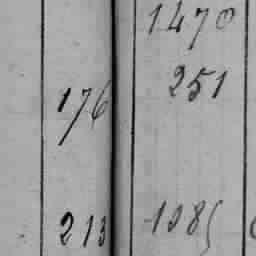 1470
251
176
213 1085